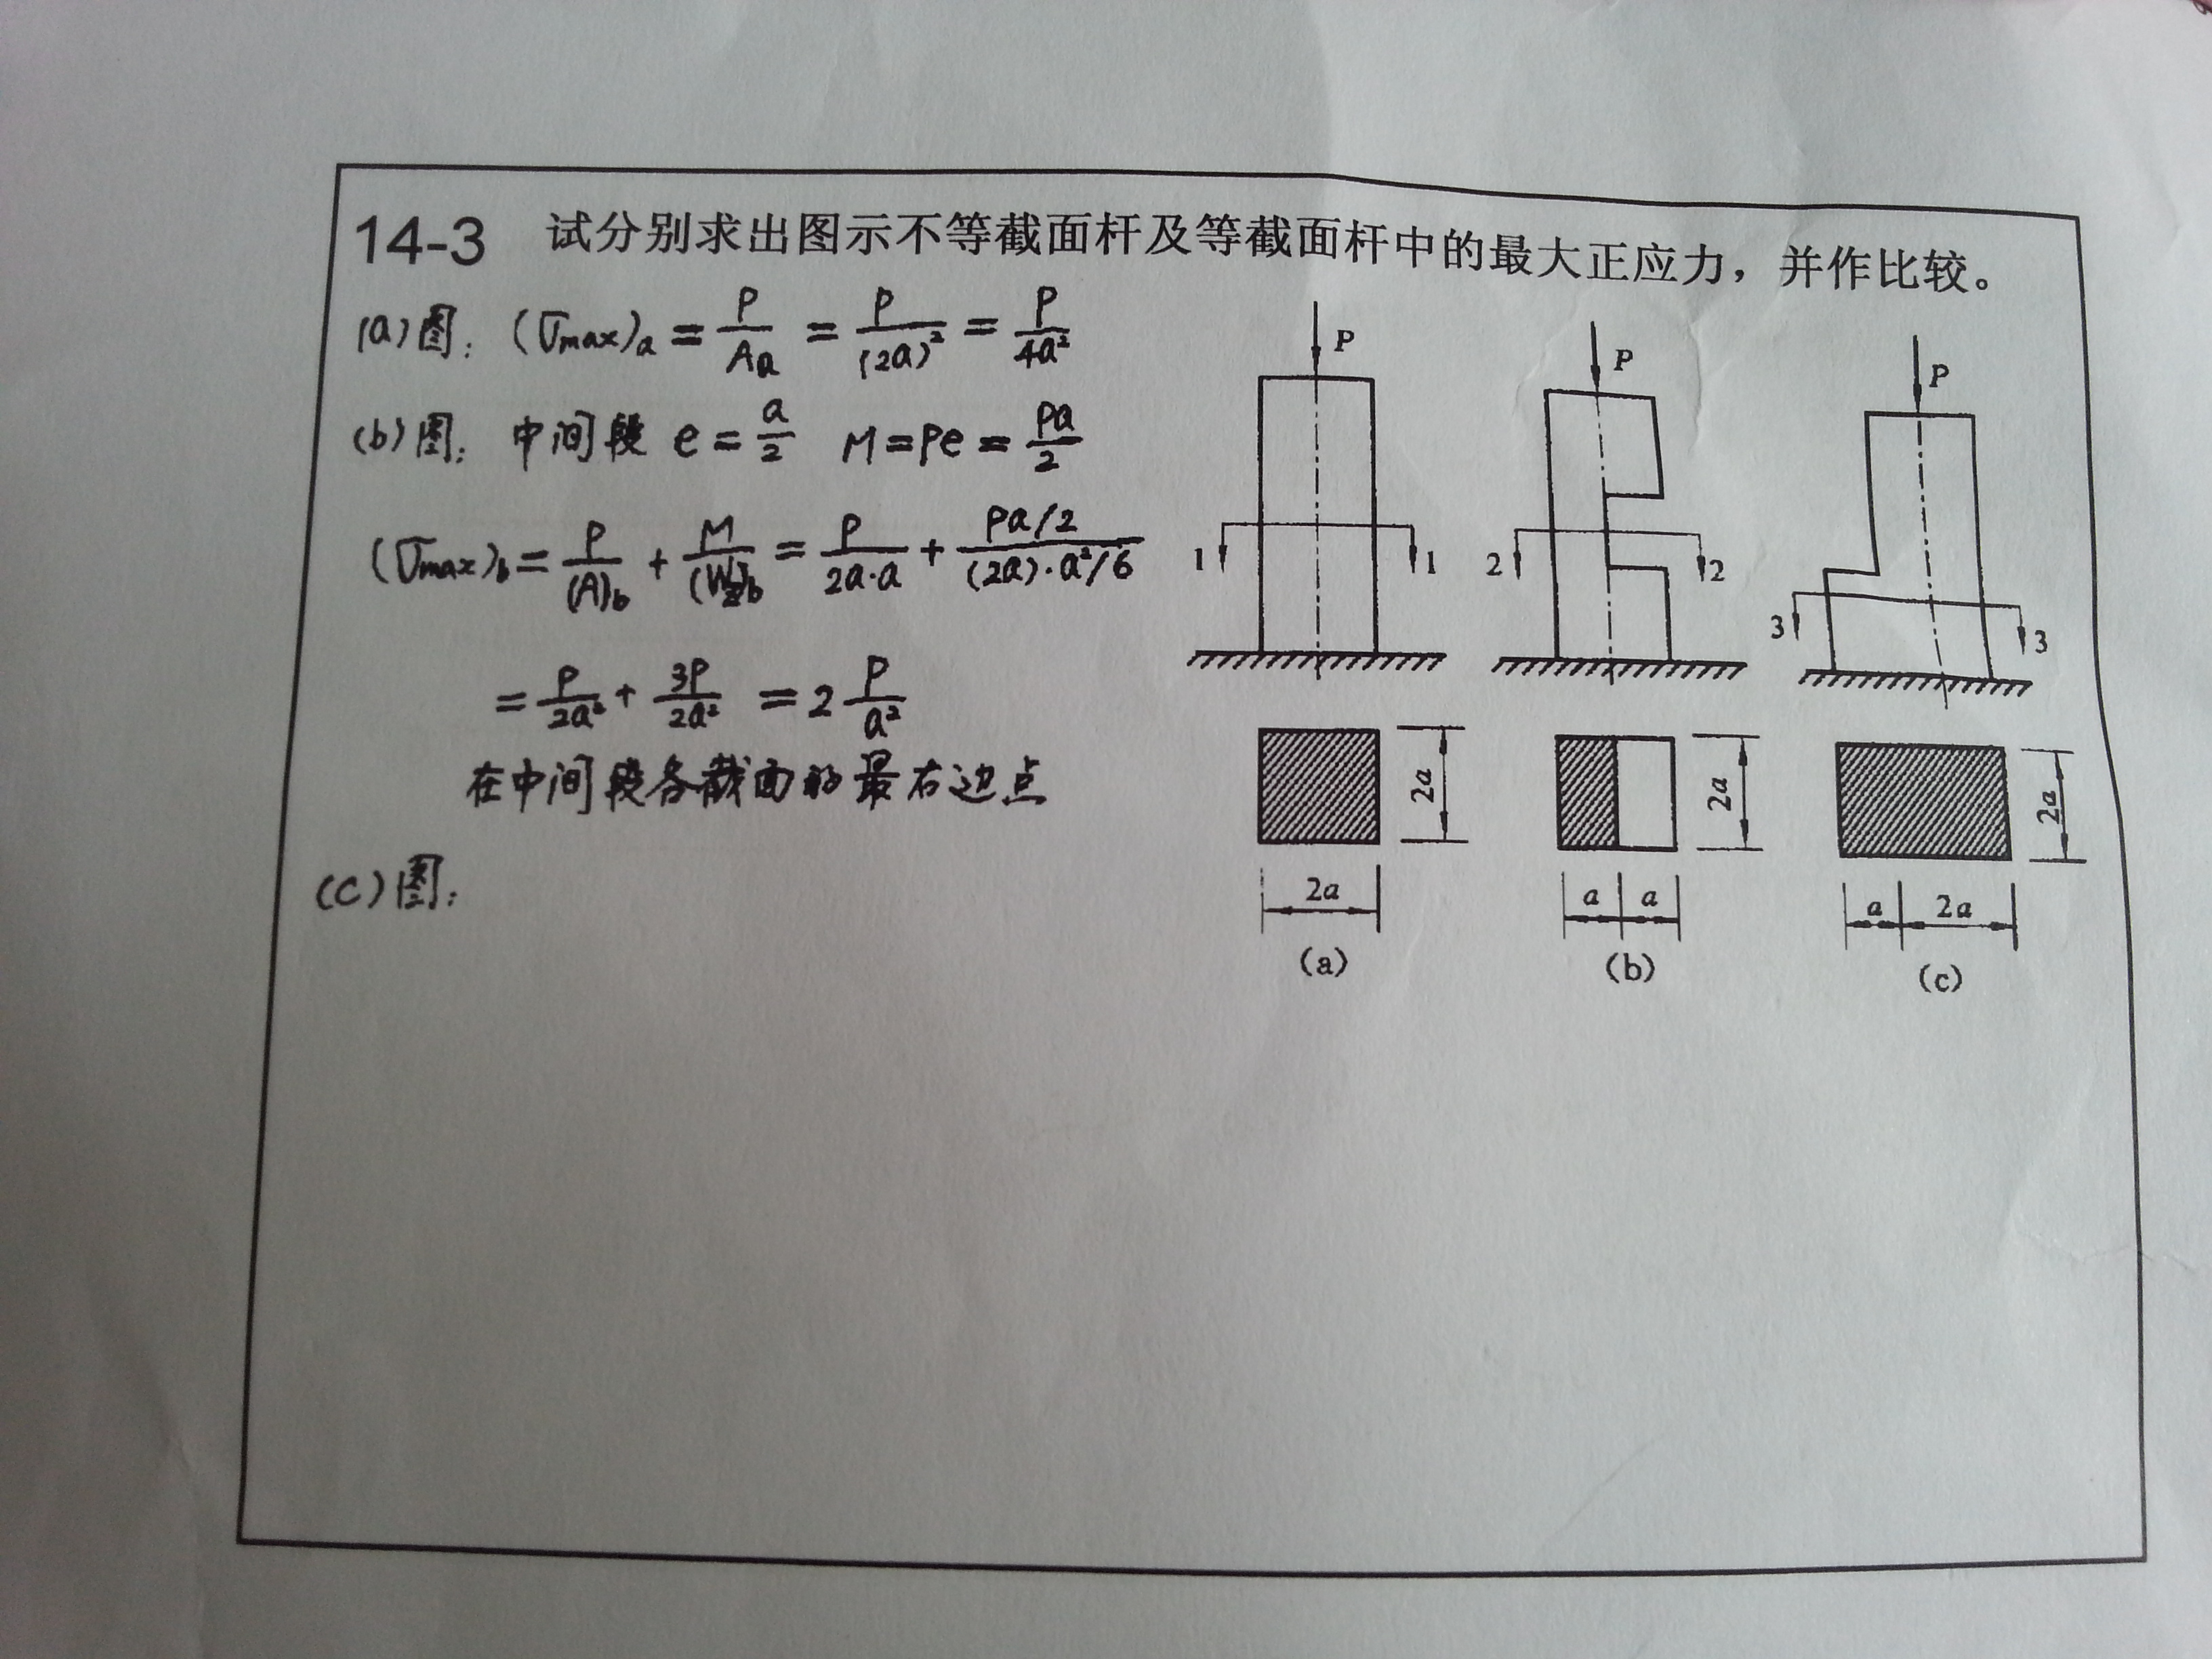 14-3 试分别求出图示不等截面杆及等截面杆中的最大正应力，并作比较。
(a)图： (σmax)a = P/Aa = P/(2a)² = P/4a²
(b)图： 中间段 e = a/2 M = Pe = Pa/2
(σmax)b = P/(A)b + M/(Wz)b = P/2a·a + (Pa/2)/((2a)·a²/6)
= P/2a² + 3P/2a² = 2 P/a²
在中间段各截面的最右边点
(C)图：
P
P
P
1 1
2 2
3 3
2a
2a
2a
2a
a a
a 2a
(a)
(b)
(c)